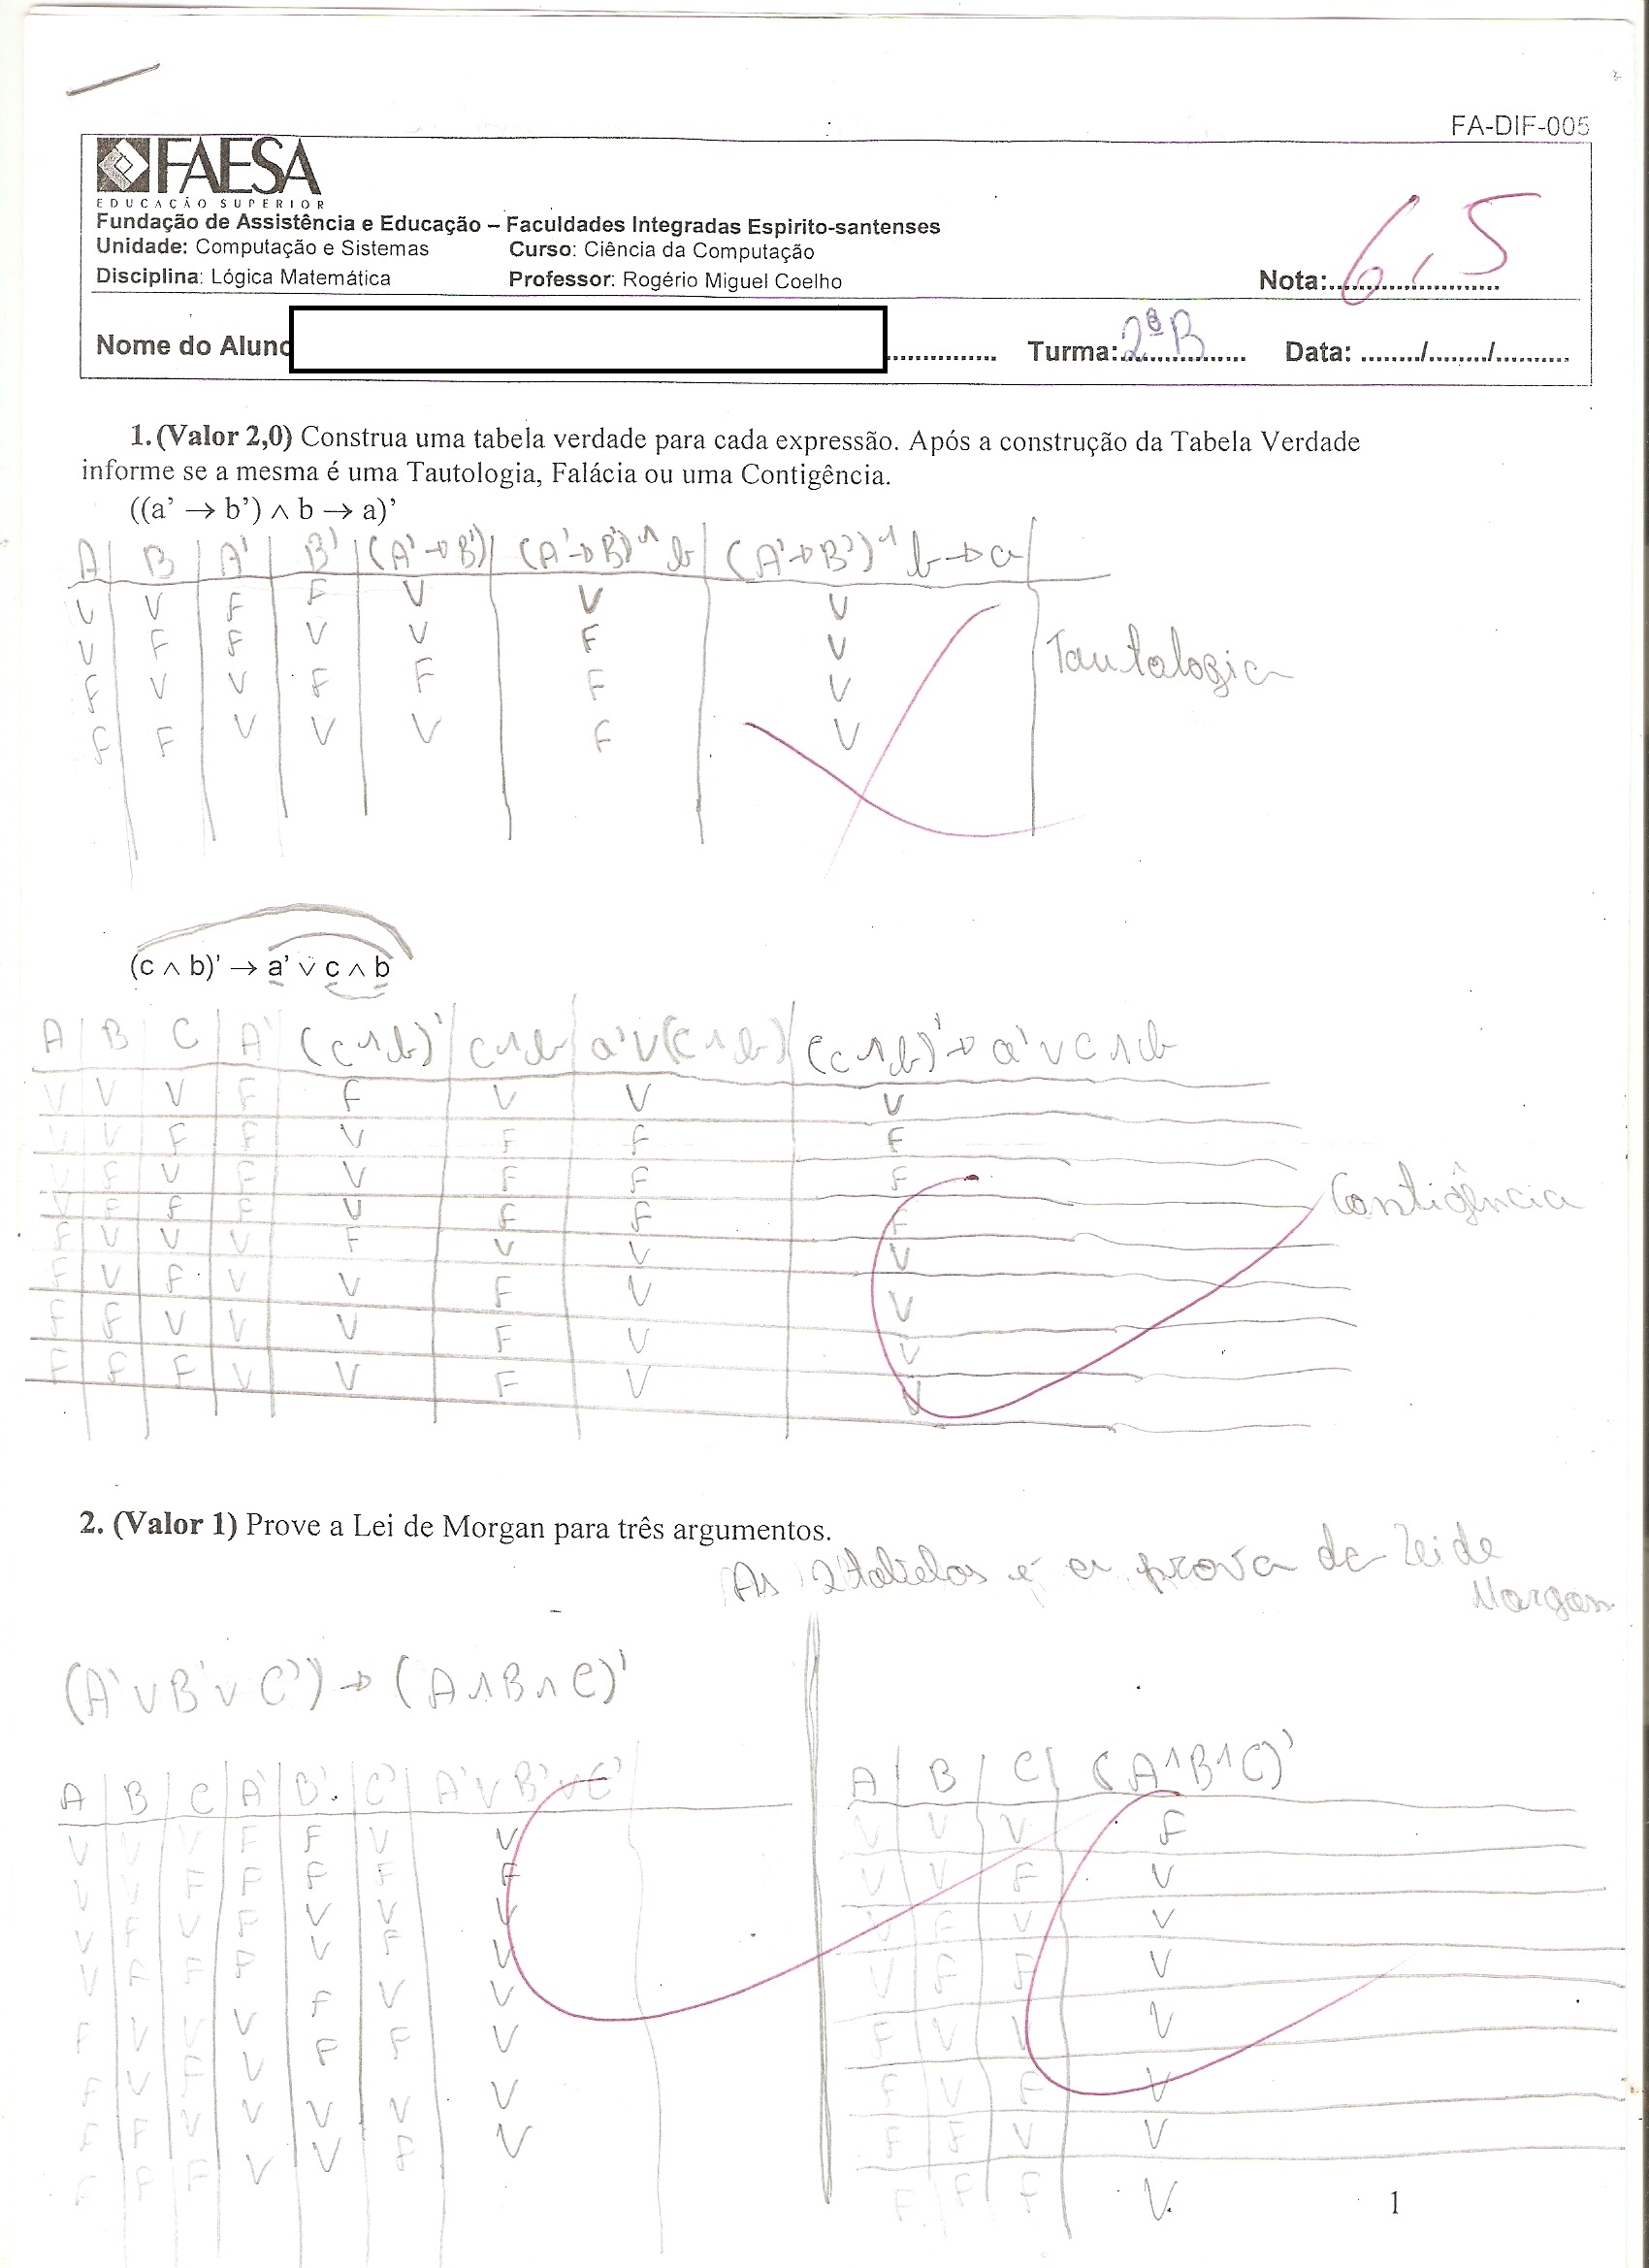 FA-DIF-005
FAESA
EDUCAÇÃO SUPERIOR
Fundação de Assistência e Educação – Faculdades Integradas Espirito-santenses
Unidade: Computação e Sistemas Curso: Ciência da Computação
Disciplina: Lógica Matemática Professor: Rogério Miguel Coelho Nota:........................ 6,5
Nome do Aluno ............... Turma:.................. 2ºB Data: ......../......../..........
1. (Valor 2,0) Construa uma tabela verdade para cada expressão. Após a construção da Tabela Verdade
informe se a mesma é uma Tautologia, Falácia ou uma Contigência.
((a' → b') ∧ b → a)'
A B A' B' (A'→B') (A'→B')∧b (A'→B')∧b→a
V V F F V V V
V F F V V F V
F V V F F F V
F F V V V F V
Tautologia
(c ∧ b)' → a' ∨ c ∧ b
A B C A' (c∧b)' c∧b a'∨(c∧b) (c∧b)'→a'∨c∧b
V V V F F V V V
V V F F V F F F
V F V F V F F F
V F F F V F F F
F V V V F V V V
F V F V V F V V
F F V V V F V V
F F F V V F V V
Contigência
2. (Valor 1) Prove a Lei de Morgan para três argumentos.
As 2 tabelas é a prova da Lei de
Morgan
(A'∨B'∨C')→(A∧B∧C)'
A B C A' B' C' A'∨B'∨C'
V V V F F V V
V V F F F F F
V F V F V V V
V F F F V F V
F V V V F V V
F V F V F F V
F F V V V V V
F F F V V F V
A B C (A∧B∧C)'
V V V F
V V F V
V F V V
V F F V
F V V V
F V F V
F F V V
F F F V
1